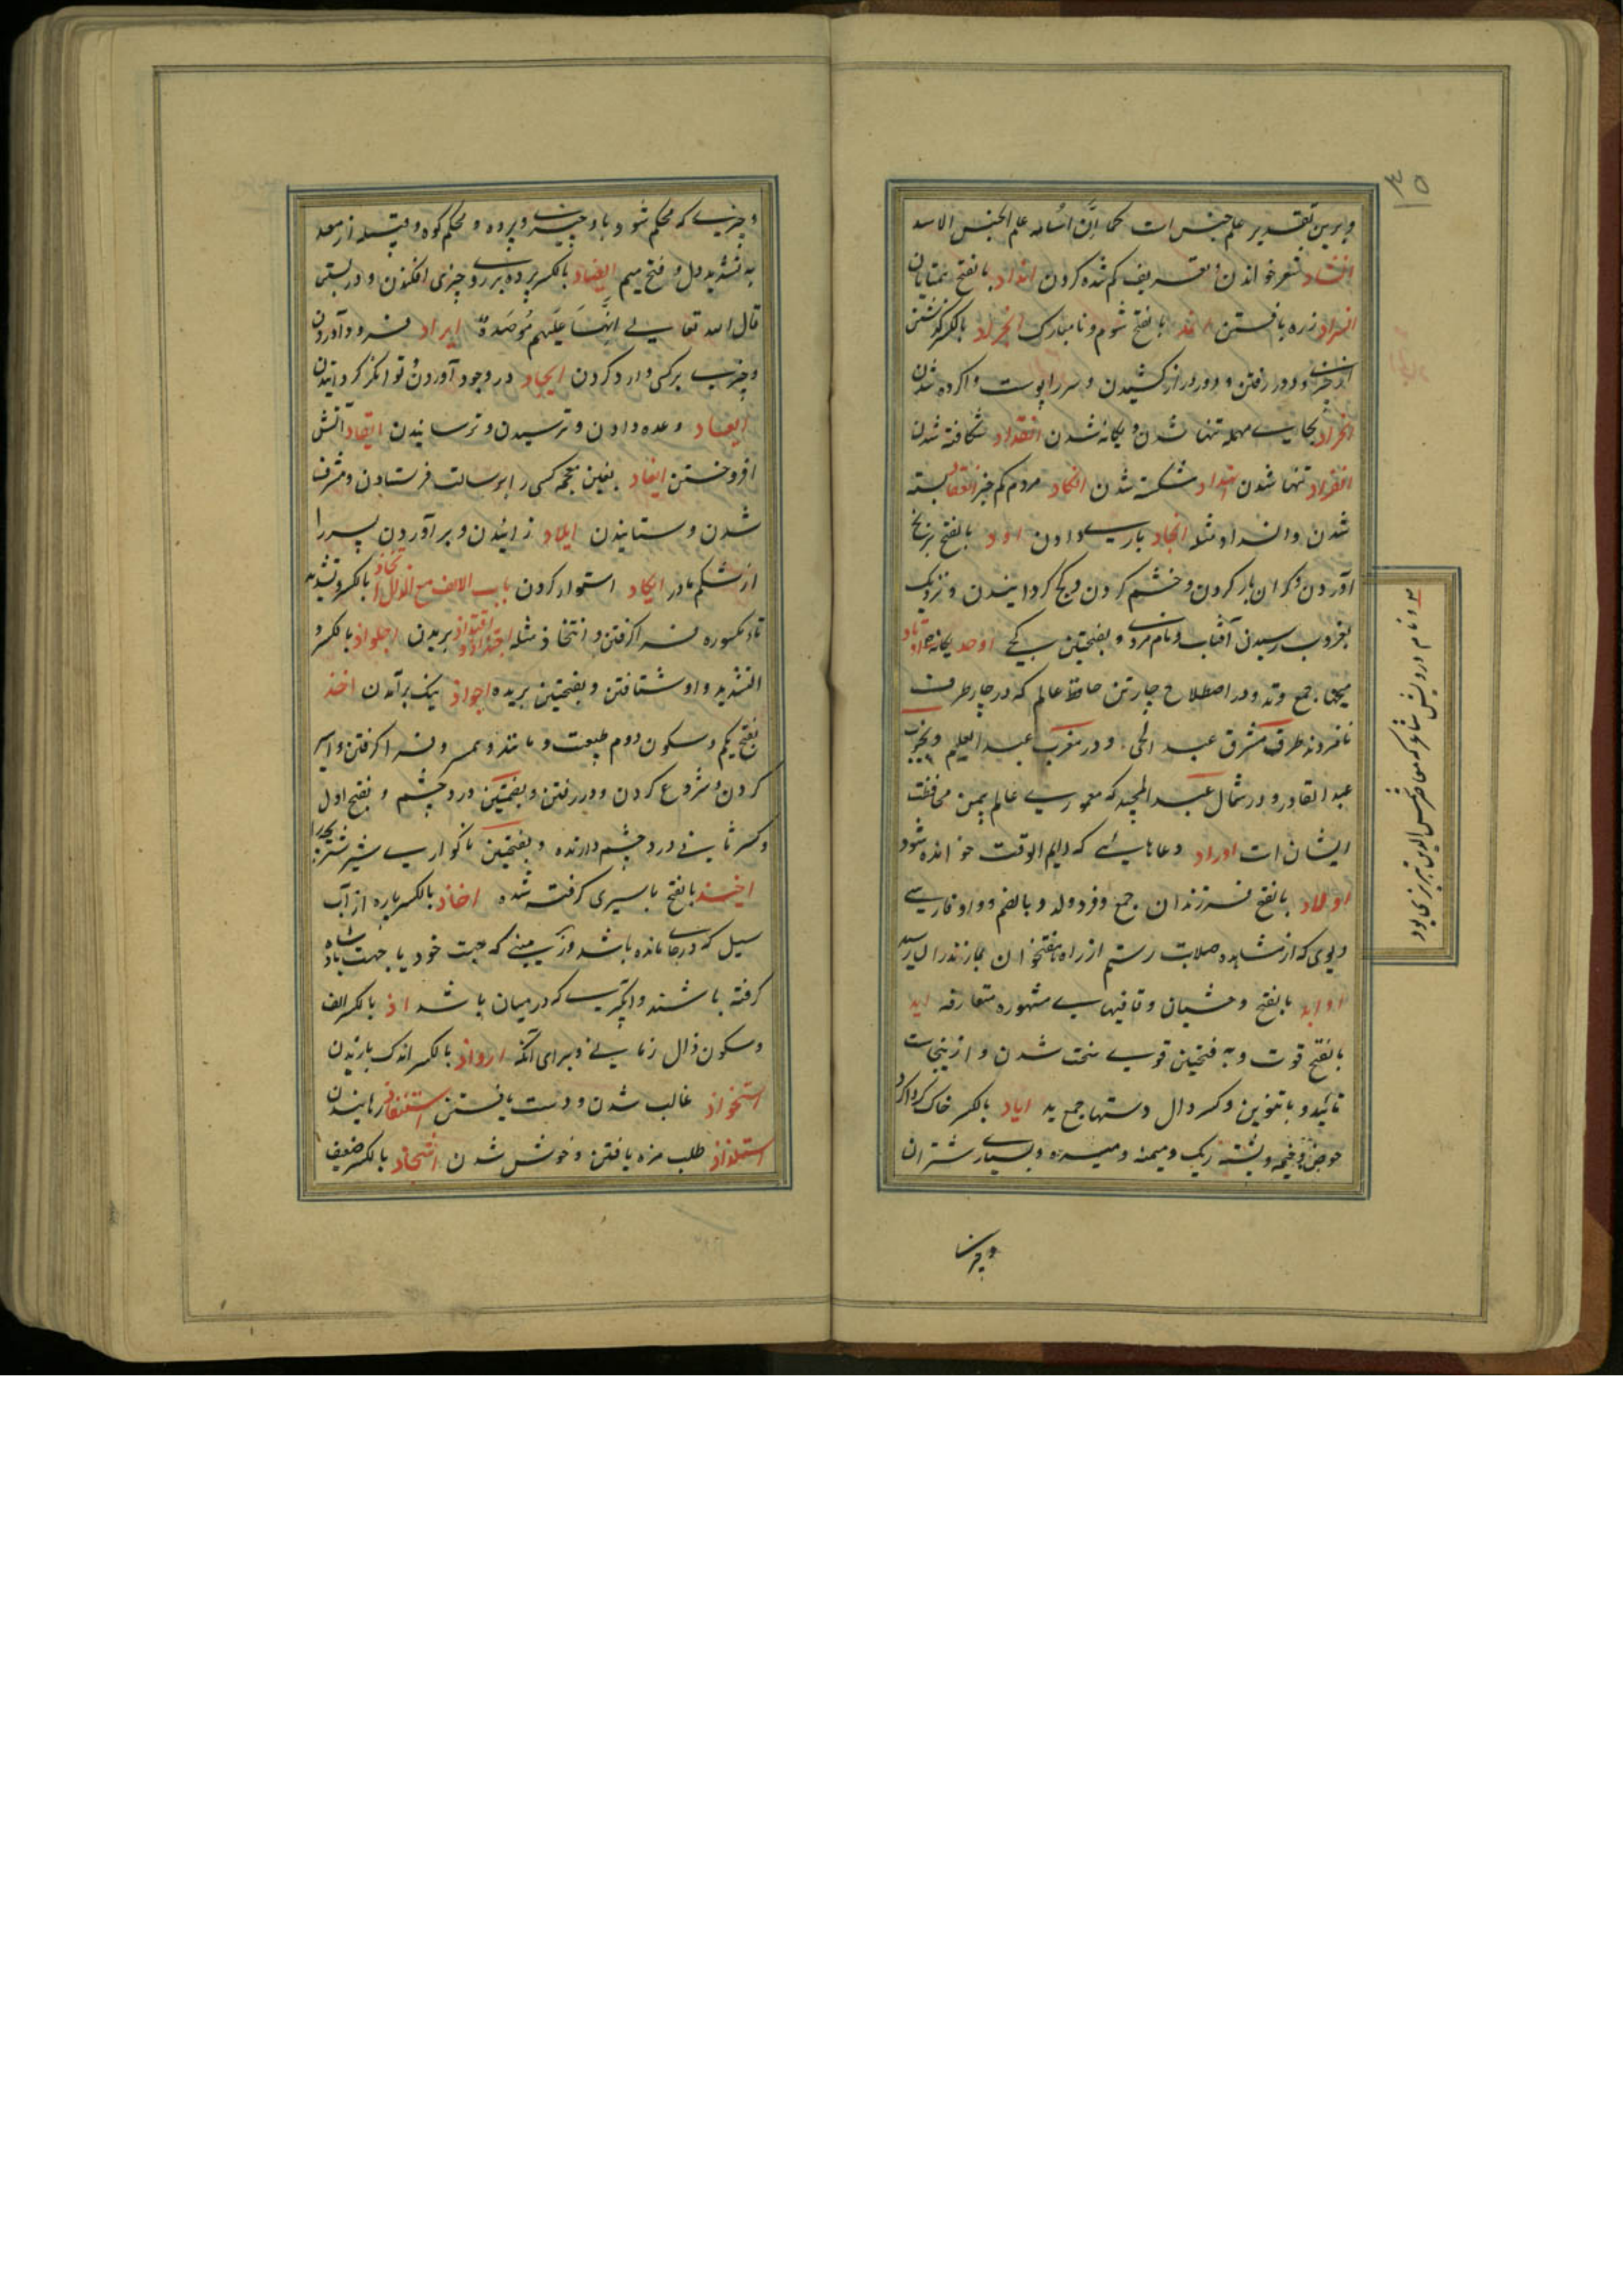 ۳۵
وبرین تقدیر علم جنس است کما ان اسامه علم الجنس الاسد
انشاد شعر خواندن و تعریف گم شده کردن انداد بالفتح همتایان
انسراد زره بافتن بالفتح شوم و نامبارک انجراد بالکسر گذشتن
از چیزی و دور رفتن و دور دراز کشیدن و سرراپوست واکرده شدن
انحراد بحای مهمله تنها شدن و یگانه شدن انقداد شکافته شدن
انفراد تنها شدن انهداد شکسته شدن انکاد مردم کم خیر انعقاد بسته
شدن وانسداد مثله انجاد یاری دادن اود بالفتح برنج
آوردن و گران بار کردن و خشم کردن و کج گردانیدن و نزدیک
بغروب رسیدن آفتاب و نام مردی و بفتحتین کجی اوحد یگانه اوتاد
میخها جمع وتد و در اصطلاح چارتن حافظ عالم که در چار طرف
نامزدند طرف مشرق عبد الحی و در مغرب عبد العلیم و بجنوب
عبد القادر و در شمال عبد المجید که معموری عالم بیمن محافظت
ایشان است اوراد دعاهائی که دایم الوقت خوانده شود
اولاد بالفتح فرزندان جمع و فرد ولد و بالضم و واو فارسی
دیوی که از مشاهده صلابت رستم از راه هفتخوان بمازندران رسید
اوابد بالفتح وحشیان و قافیهای مشهوره متعارفه اید
بالفتح قوت و به فتحتین قوی سخت شدن و ازینجاست
تائید و باتنوین و کسر دال دستها جمع ید ایاد بالکسر خاک گرداگرد
حوض و خیمه و پشته ریگ و میمنه و میسره و بسیاری شتران
و نام درویش شاعر که معاصر شمس الدین تبریزی بود
و چیزی
و چیزی که محکم شود با و چیزی و پرده و محکم کوه و قبیله از معد
به تشدید دال و فتح میم ایصاد بالکسر پرده بر روی چیزی افکندن و در بستن
قال الله تعالی انها علیهم موصدة ایراد فرود آوردن
و چیزی بر کسی وارد کردن ایجاد در وجود آوردن و توانگر گردانیدن
ایعاد وعده دادن و ترسیدن و ترسانیدن ایقاد آتش
افروختن ایفاد بغین معجمه کسی را برسالت فرستادن و مشرف
شدن و ستانیدن ایلاد زائیدن و برآوردن پسر را
از شکم مادر ایکاد استوار کردن باب الالف مع الذال اتخاذ بالکسر و تشدید
تاء مکسوره فراگرفتن و انتخاذ مثله اجتذاذ و اقتذاذ بریدن اجلواذ بالکسر و
التشدید واو شتافتن و بفتحتین بریده اجواذ نیک برآمدن اخذ
بفتح یکم و سکون دوم طبیعت و مانند و سر و فراگرفتن و اسیر
کردن و شروع کردن و در رفتن و بضمتین درد چشم و بفتح اول
و کسر ثانی درد چشم دارنده و بفتحتین ناگواری شیر شتر بچه را
اخیذ بالفتح باسیری گرفته شده اخاذ بالکسر پاره از آب
سیل که در جای مانده باشد و زمینی که جهت خود یا جهت پادشاه
گرفته باشند وآبگیری که در میان باشد اذ بالکسر الف
و سکون ذال زمانی و برای آنکه ارواذ بالکسر اندک باریدن
استحواذ غالب شدن و دست یافتن استنقاذ رهانیدن
استلذاذ طلب مزه یافتن و خوش شدن اشحاذ بالکسر ضعیف